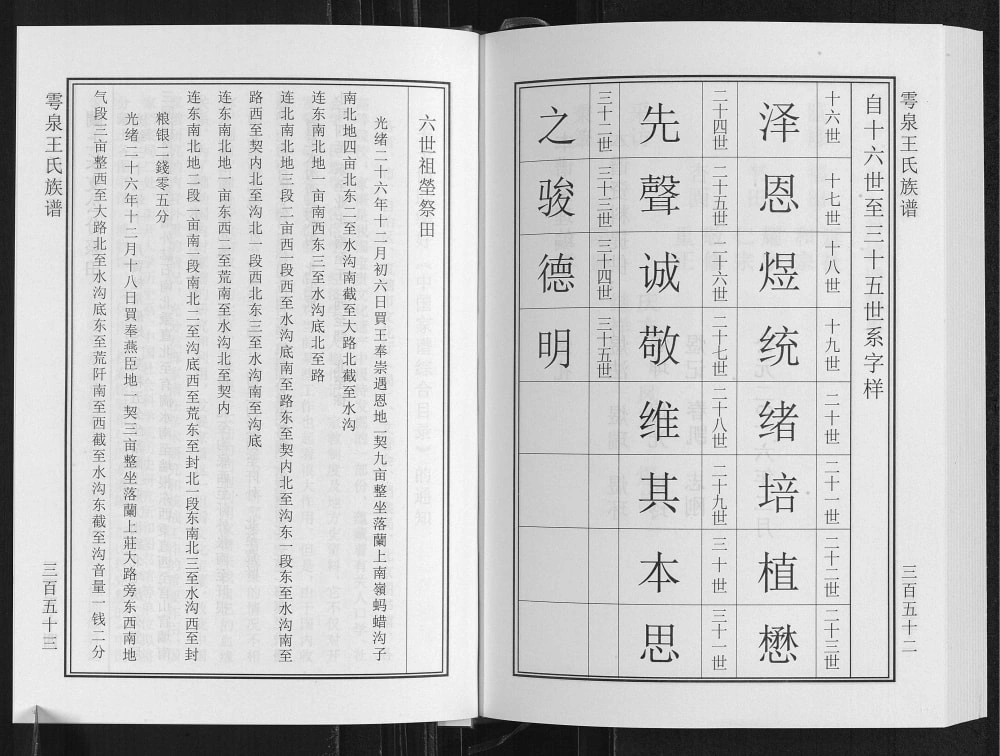 雩泉王氏族谱
三百五十二
自十六世至三十五世系字样
十六世 十七世 十八世 十九世 二十世 二十一世 二十二世 二十三世
泽 恩 煜 统 绪 培 植 懋
二十四世 二十五世 二十六世 二十七世 二十八世 二十九世 三十世 三十一世
先 聲 诚 敬 维 其 本 思
三十二世 三十三世 三十四世 三十五世
之 骏 德 明
六世祖塋祭田
光绪二十六年十二月初六日買王奉崇遇恩地一契九亩整坐落蘭上南嶺蚂蜡沟子
南北地四亩北东二至水沟南截至大路北截至水沟
连东南北地一亩南西东三至水沟底北至路
连北南北地三段二亩西一段西至水沟底南至路东至契内北至沟东一段东至水沟南至
路西至契内北至沟北一段西北东三至水沟南至沟底
连东南北地一亩东西二至荒南至水沟北至契内
连东南北地二段一亩南一段南北二至沟底西至荒东至封北一段东南北三至水沟西至封
粮银二錢零五分
光绪二十六年十二月十八日買奉燕臣地一契三亩整坐落蘭上莊大路旁东西南地
气段三亩整西至大路北至水沟底东至荒阡南至西截至水沟东截至沟音量一钱二分
雩泉王氏族谱
三百五十三